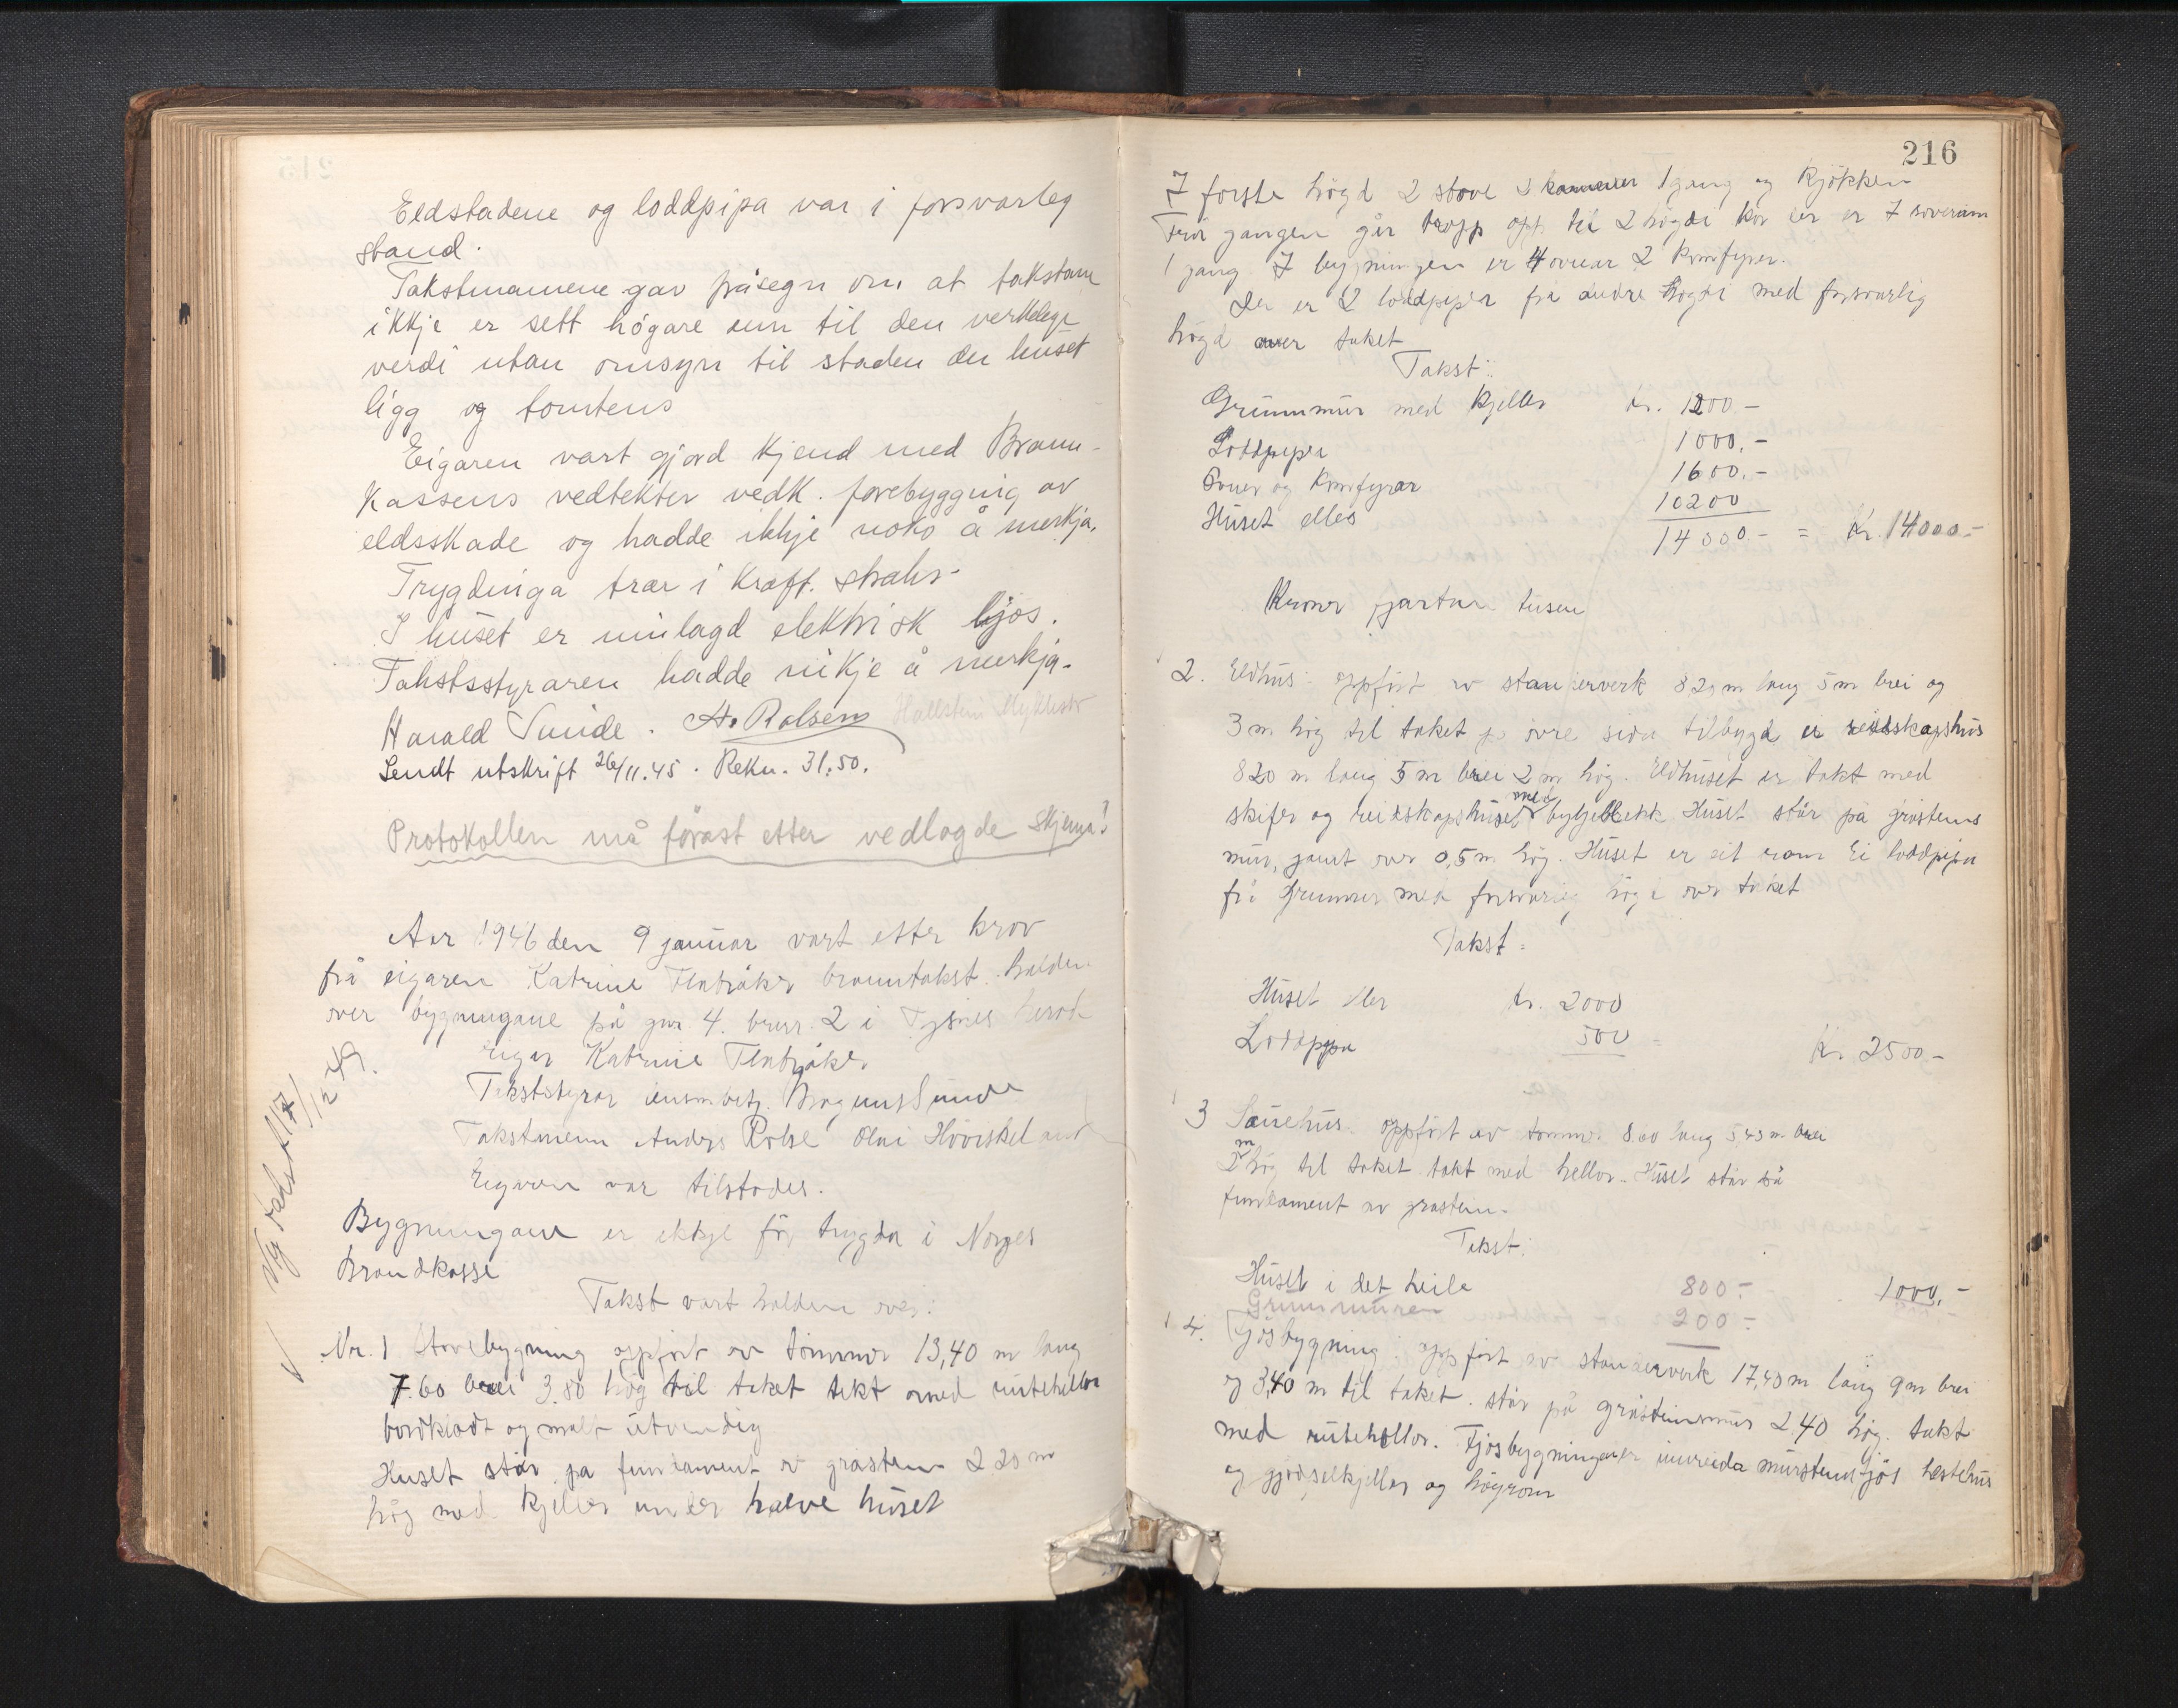 Eldstadene og loddpipa var i forsvarleg
stand.
Takstmannene gav påsegn om at takstane
ikkje er sett högare enn til den verkelege
verdi utan omsyn til staden der huset
ligg og tomtens
Eigaren vart gjord kjend med Brann-
kassens vedtekter vedk. forebygging av
eldsskade og hadde ikkje noko å merkja.
Trygdinga trær i kraft straks.
I huset er innlagd elektrisk ljos.
Takstsstyraren hadde inkje å merkja.
Harald Sunde. A. Rolsen Hallstein Myklestv
Sendt utskrift 26/11.45. Rekn. 31.50.
Protokollen må förast etter vedlagde skjema!
Aar 1946 den 9 januar vart etter krav
frå eigaren Katrine Flatråker branntakst halden
over bygningane på gnr 4. bnr. 2 i Tysnes herad
Eigar Katrine Flatråker
Takststyrar lensm.betj. Magnus Sunde
Takstmenn Anders Rolse Olai Hoviskeland
Eigaren var tilstades.
Bygningane er ikkje för trygda i Norges
Brandkasse
Takst vart halden over:
Ny takst 17/12 49.
Nr. 1 Stovebygning oppfört av tömmer 13,40 m lang
7.60 brei 3.80 hög til taket tekt med rutehellor
bordkledt og malt utvendig
Huset står på fundament av gråstein 2 20 m
hög med kjeller under halve huset
216
I forste högd 2 stove 2 kammer 1 gang og kjökken
Frå gangen går tropp opp til 2 högdi kor der er 7 soverom
1 gang I bygningen er 4 ovnar 2 komfyrer.
Der er 2 loddpiper frå andre högdi med forsvarlig
högd over taket
Takst:
Grunnmur med kjeller kr. 1200 -
Loddpiper 1000.-
Ovner og komfyrar 1600.-
Huset elles 10200
14000.- = Kr. 14000.-
Kroner fjortan tusen
2. Eldhus: oppfört av standerverk 8 20 m lang 5 m brei og
3 m hög til taket på övre sida tilbygd er reidskapshus
8 20 m lang 5 m brei 2 m hög. Eldhuset er tekt med
skifer og reidskapshuset med bylgeblekk Huset står på gråsteins
mur, jamt over 0,5 m hög. Huset er eit rom Ei loddpipa
frå Grunnen med forsvarlig högd over taket
Takst:
Huset eller kr. 2000
Loddpipa 500 Kr. 2500 -
3 Sauehus oppfört av tömmer 8.00 lang 5,45 m brei
2 m hög til taket tekt med hellor. Huset står på
fundament av gråstein.
Takst:
Huset i det heile 800.- 1000.-
Grunnmuren 200.-
4. Fjösbygning: oppfört av standerverk 17,40 m lang 9 m brei
og 3,40 m til taket. står på gråsteinsmur 2,40 hög. tekt
med rutehellor. Fjösbygningen er innreida mursteinfjös hestehus
og gjödselkjellar og höyrom